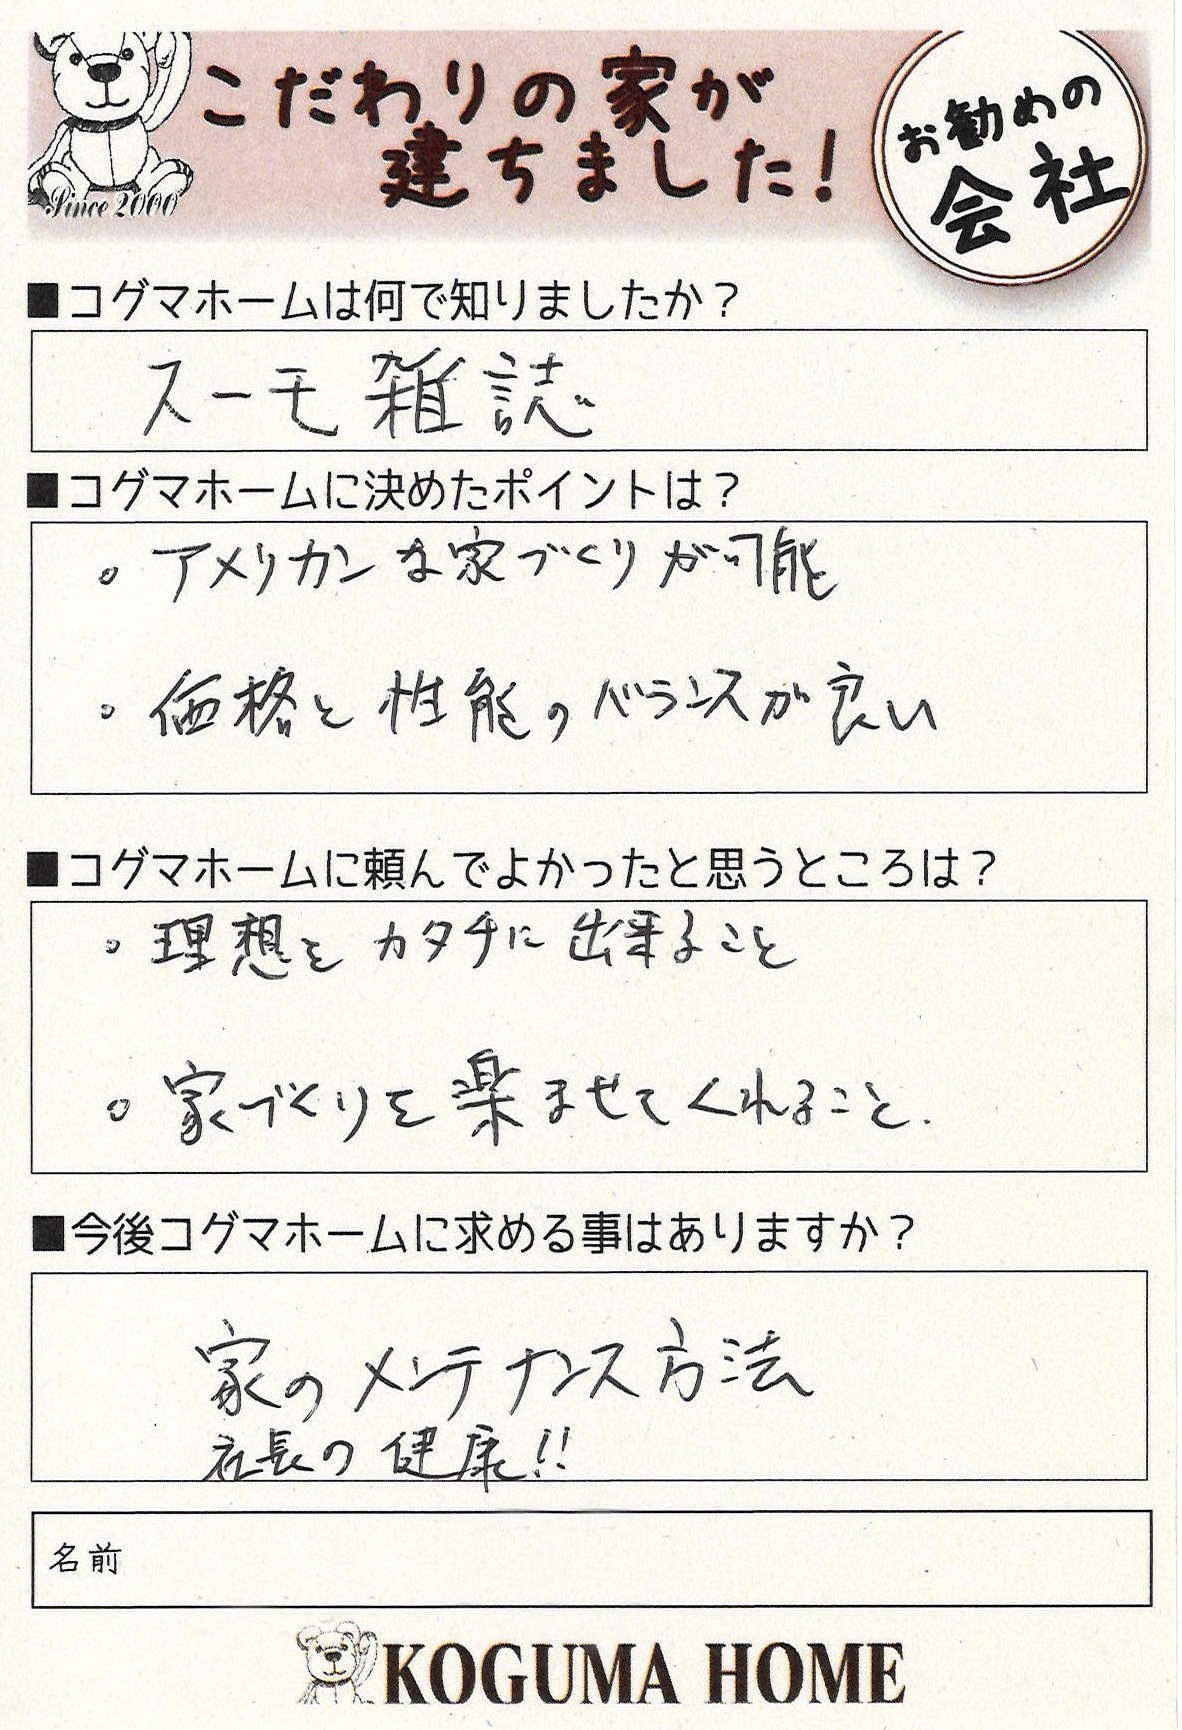 こだわりの家が
建ちました!
お勧めの
会社
Since 2000
■コグマホームは何で知りましたか？
スーモ 雑誌
■コグマホームに決めたポイントは？
。アメリカンな家づくりが可能
。価格と性能のバランスが良い
■コグマホームに頼んでよかったと思うところは？
。理想をカタチに出来ること
。家づくりを楽ませてくれること.
■今後コグマホームに求める事はありますか？
家のメンテナンス方法
社長の健康!!
名前
KOGUMA HOME